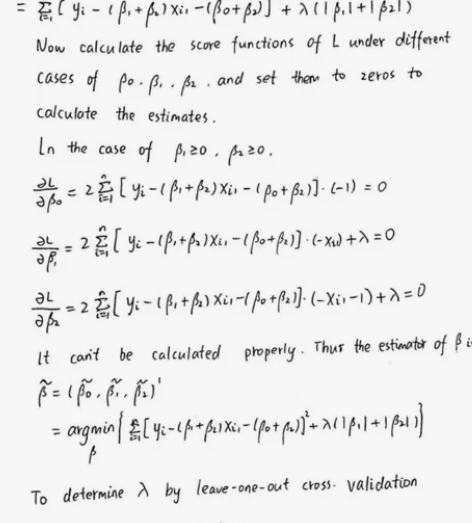 = Σ_{i=1}^{n} [ yi - (β1+β2) Xi1 - (β0+β2) ]² + λ ( |β1| + |β2| )
Now calculate the score functions of L under different
cases of β0, β1, β2, and set them to zeros to
calculate the estimates.
In the case of β1≥0, β2≥0.
∂L/∂β0 = 2 Σ_{i=1}^{n} [ yi - (β1+β2) Xi1 - (β0+β2) ]·(-1) = 0
∂L/∂β1 = 2 Σ_{i=1}^{n} [ yi - (β1+β2) Xi1 - (β0+β2) ]·(-Xi1) + λ = 0
∂L/∂β2 = 2 Σ_{i=1}^{n} [ yi - (β1+β2) Xi1 - (β0+β2) ]·(-Xi1 - 1) + λ = 0
It can't be calculated properly. Thus the estimator of β i
β̃ = (β̃0, β̃1, β̃2)'
= argmin_β { Σ_{i=1}^{n} [ yi - (β1+β2) Xi1 - (β0+β2) ]² + λ ( |β1| + |β2| ) }
To determine λ by leave-one-out cross-validation